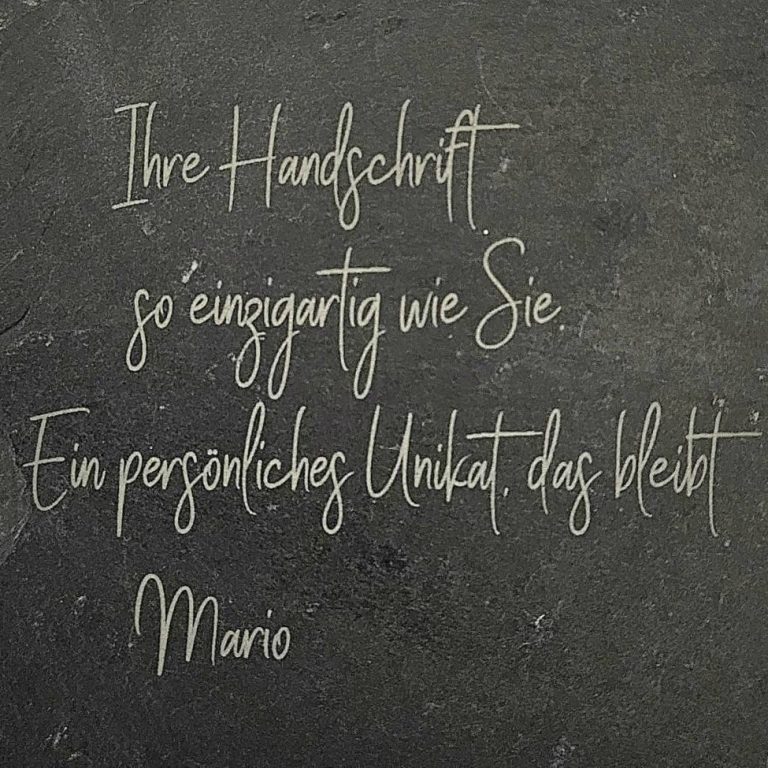 Ihre Handschrift
so einzigartig wie Sie.
Ein persönliches Unikat, das bleibt
Mario